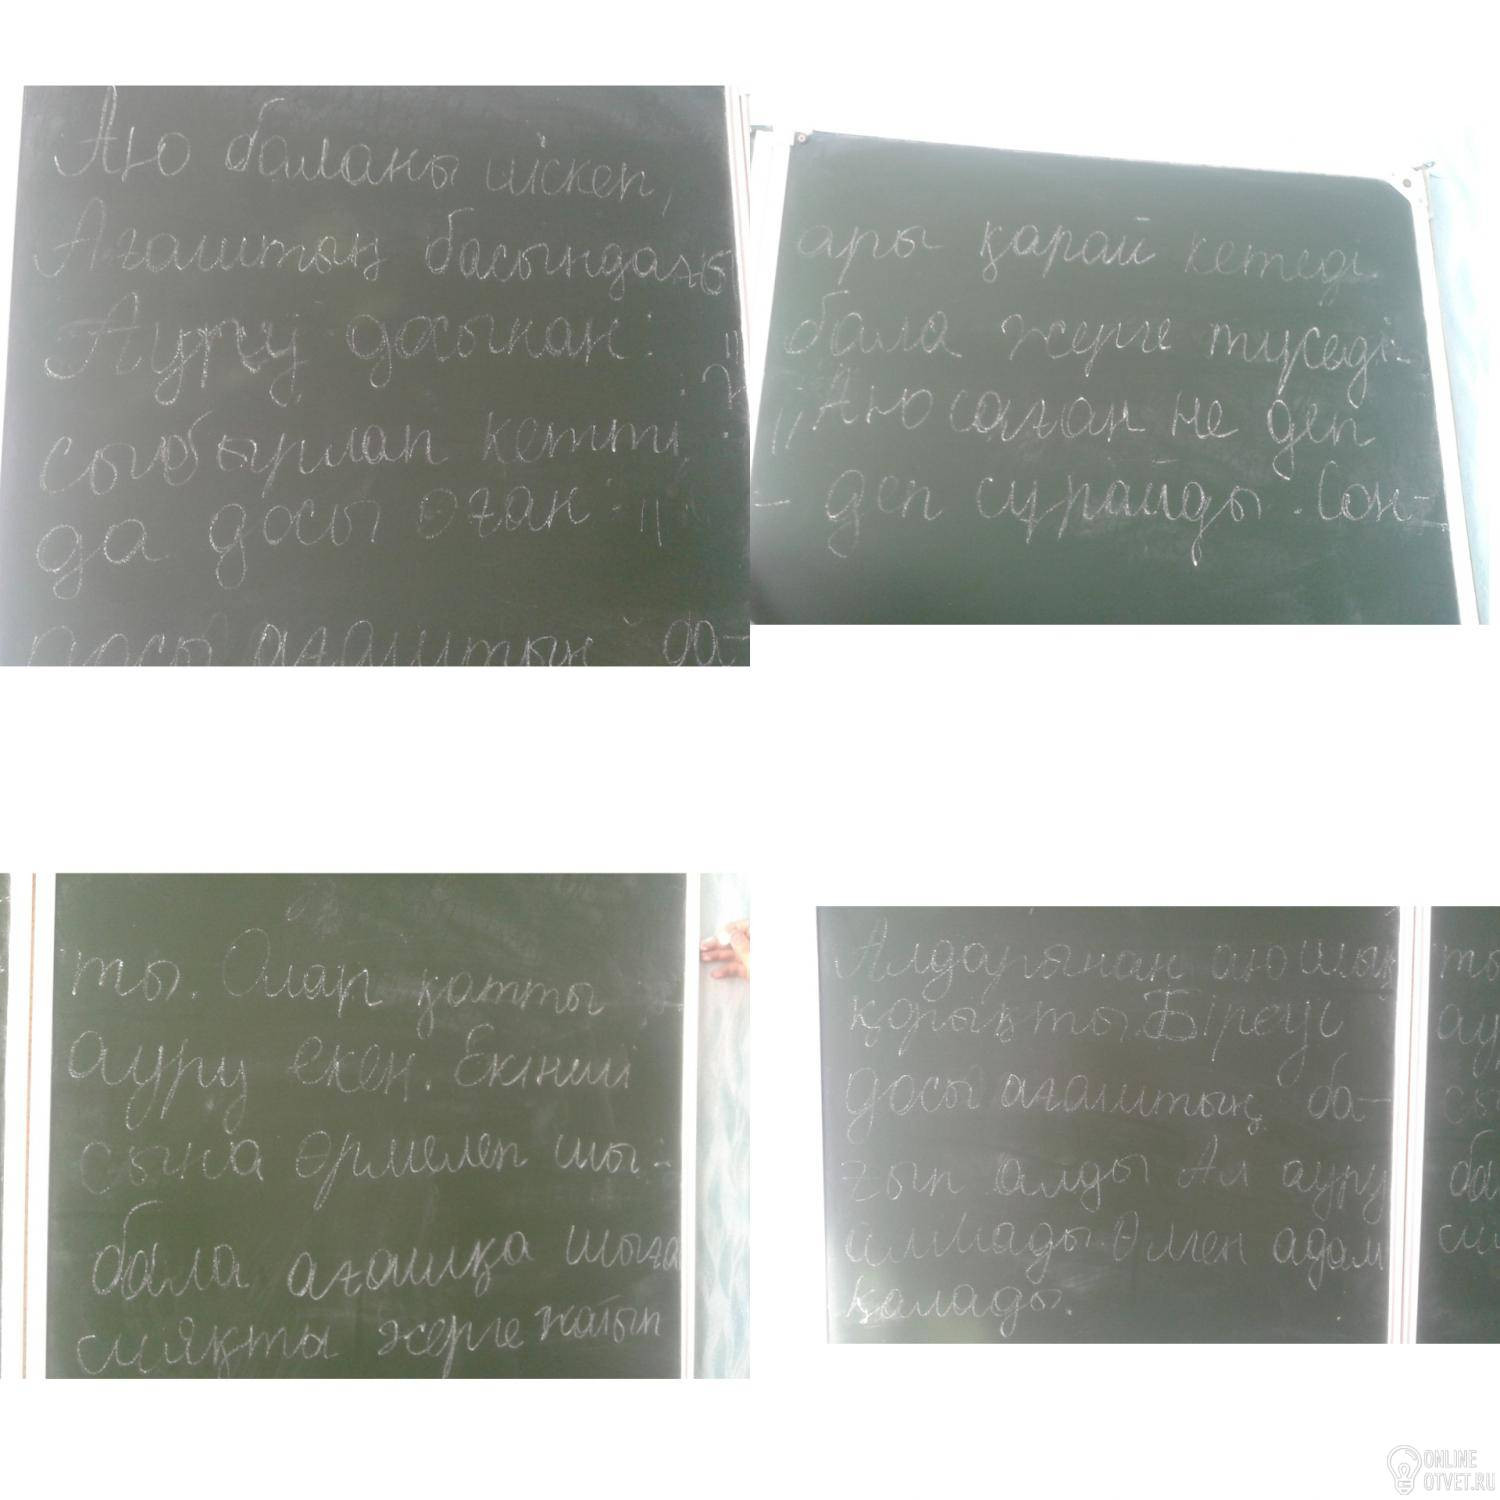 Аю баланы иіскеп,
Ағаштың басындағы
Ауру досынан:
сыбырлап кетті
да досы оған: "
досы ағаштың ба-
ары қарай кетеді.
бала жерге түседі.
"Аю саған не деп
- деп сұрайды. Сон-
ты. Олар қатты
ауру екен. Екінші
сына өрмелеп шы-
бала ағашқа шыға
сияқты жерге жатып
Алдарынан аю шық
қорықты. Біреуі
досы ағаштың ба-
ғып алды Ал ауру
алмады. Өлген адам
қалады.
ты
ау
сы
ба
си
ONLINE
OTVET.RU